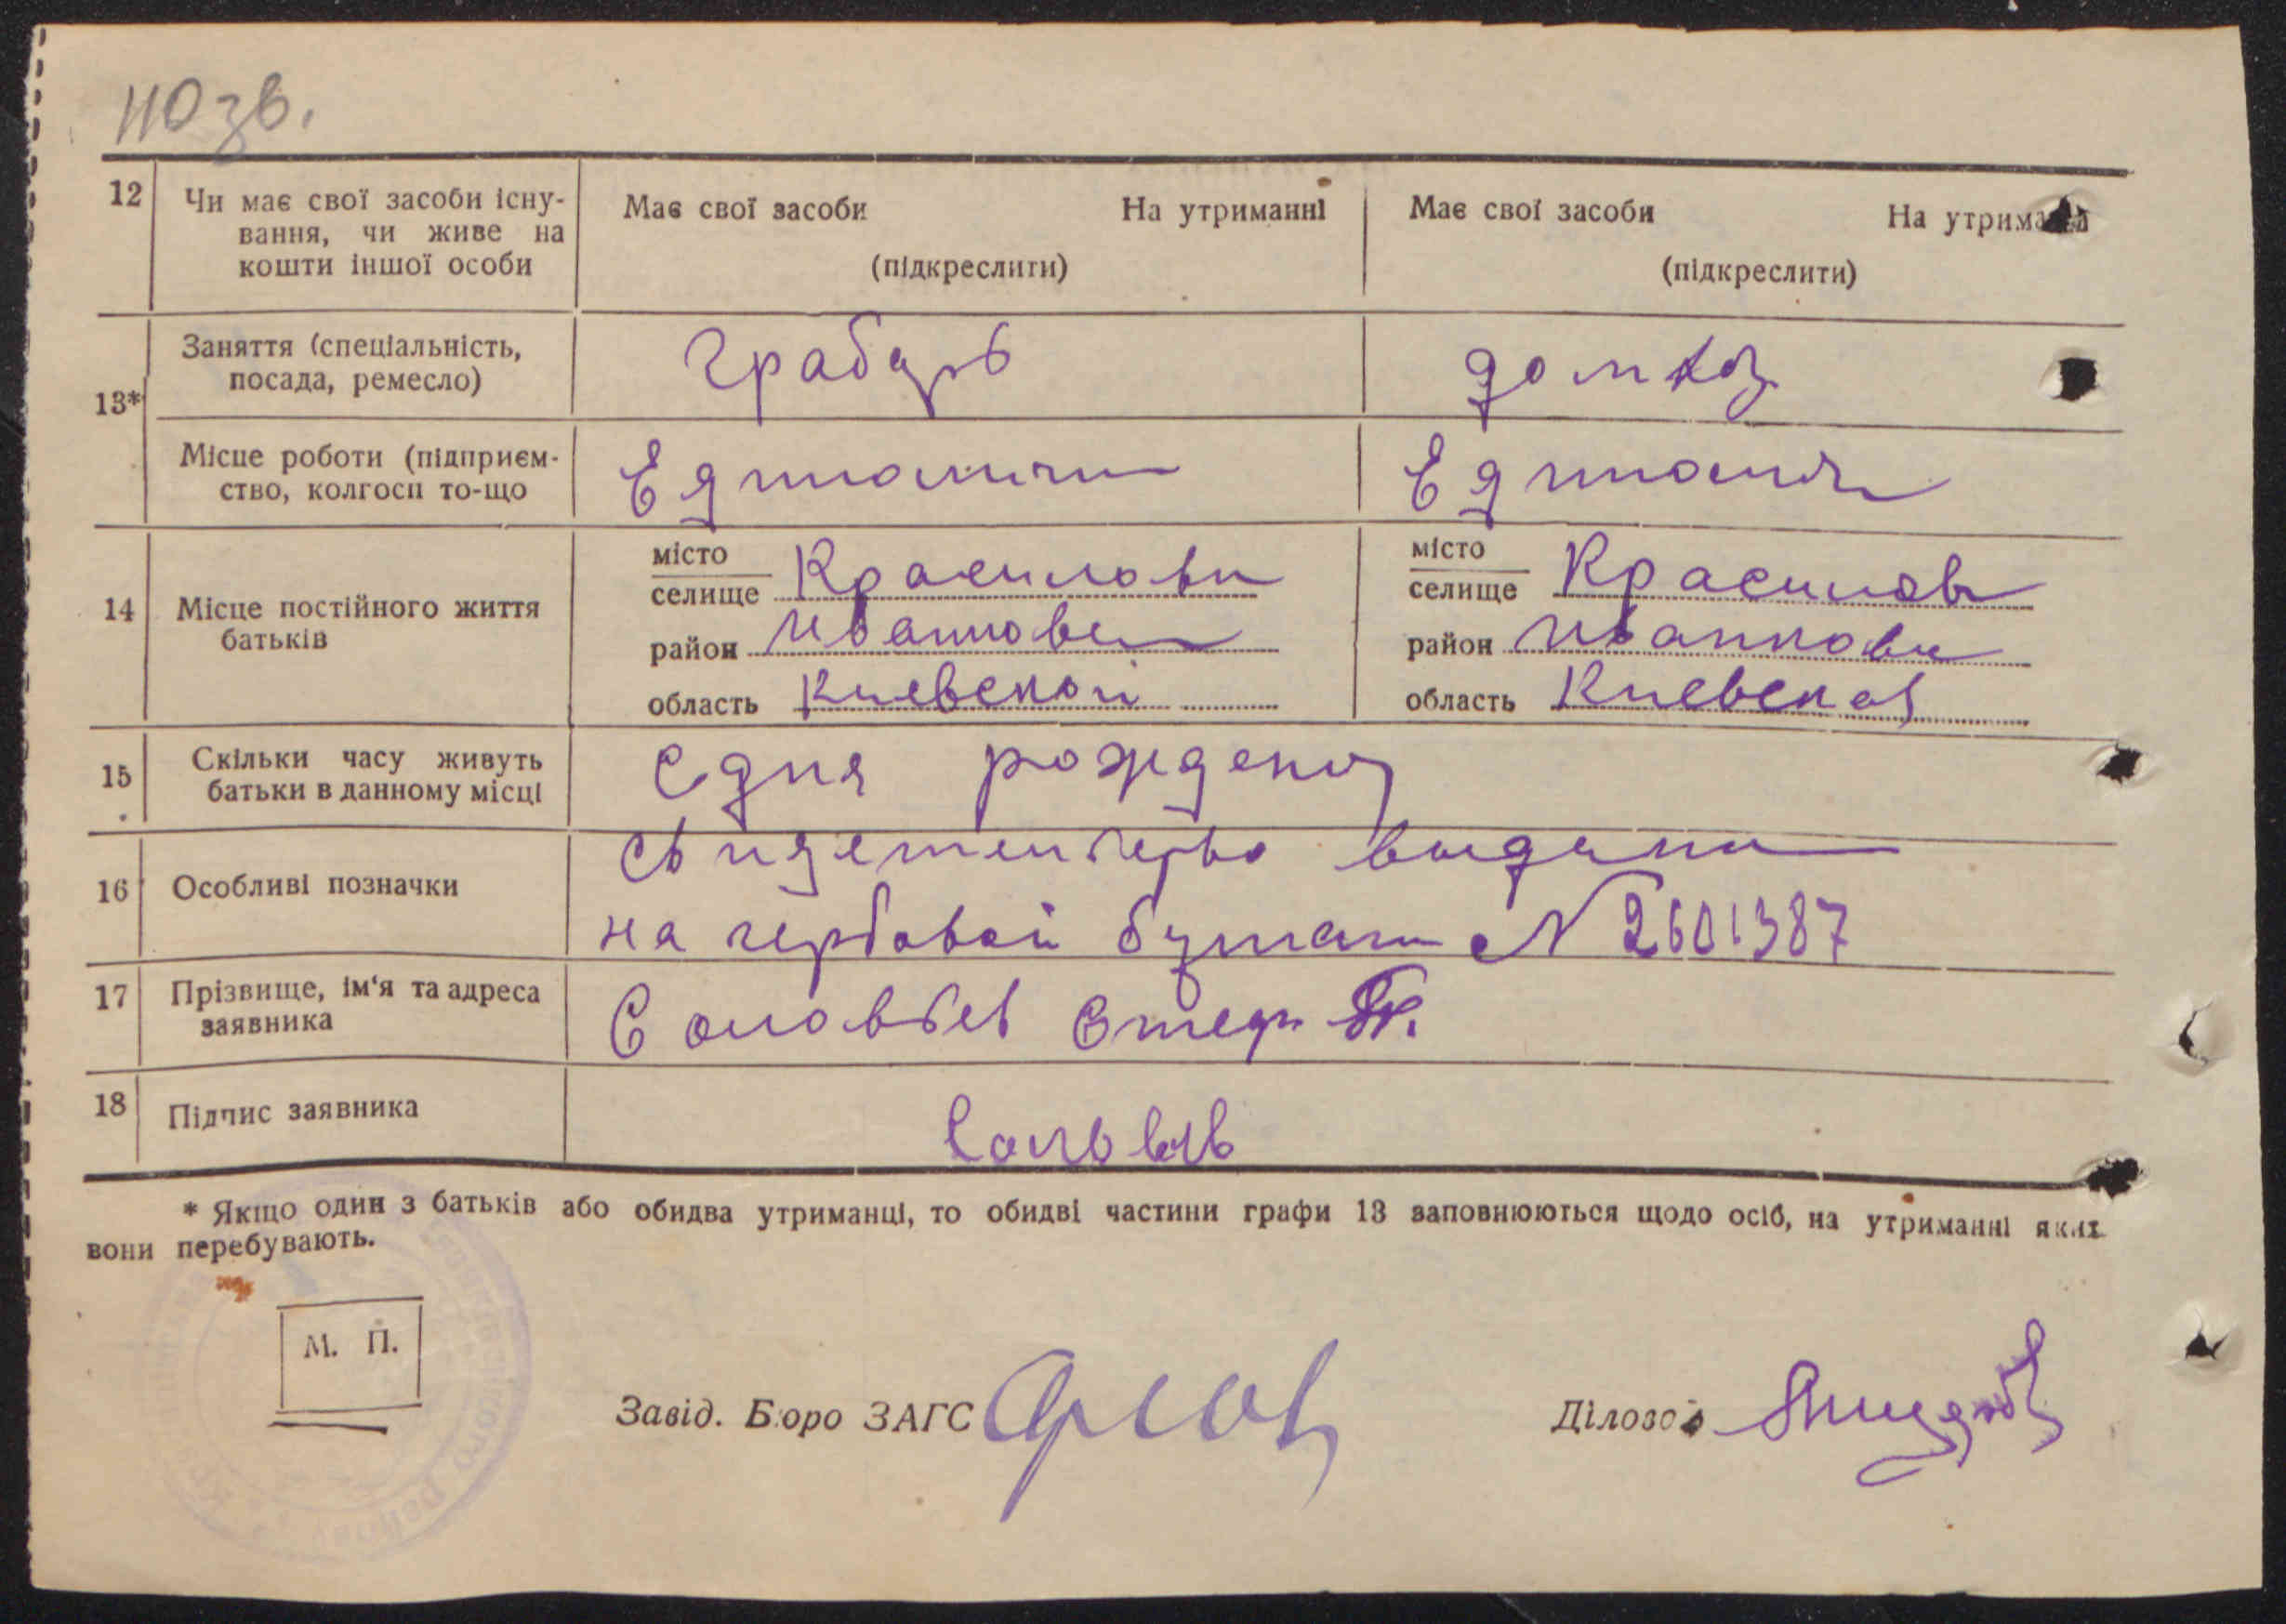 110 зв.
12 Чи має свої засоби існу- Має свої засоби На утриманні Має свої засоби На утриманні
вання, чи живе на
кошти іншої особи (підкреслити) (підкреслити)
Заняття (спеціальність, Грабарь домхоз
посада, ремесло)
13*
Місце роботи (підприєм- Единолични Единолич
ство, колгосп то-що
місто місто
селище Красиловки селище Красиловк
14 Місце постійного життя
батьків район Иванковск район Иванковск
область Киевской область Киевской
15 Скільки часу живуть С дня рождения
батьки в данному місці
Свидетельство выдано
16 Особливі позначки
на гербовой бумаги N 2601387
17 Прізвище, ім'я та адреса Соловьев
заявника
18 Підпис заявника Соловьев
* Якщо один з батьків або обидва утриманці, то обидві частини графи 13 заповнюються щодо осіб, на утриманні яких
вони перебувають.
М. П.
Завід. Бюро ЗАГС Діловод